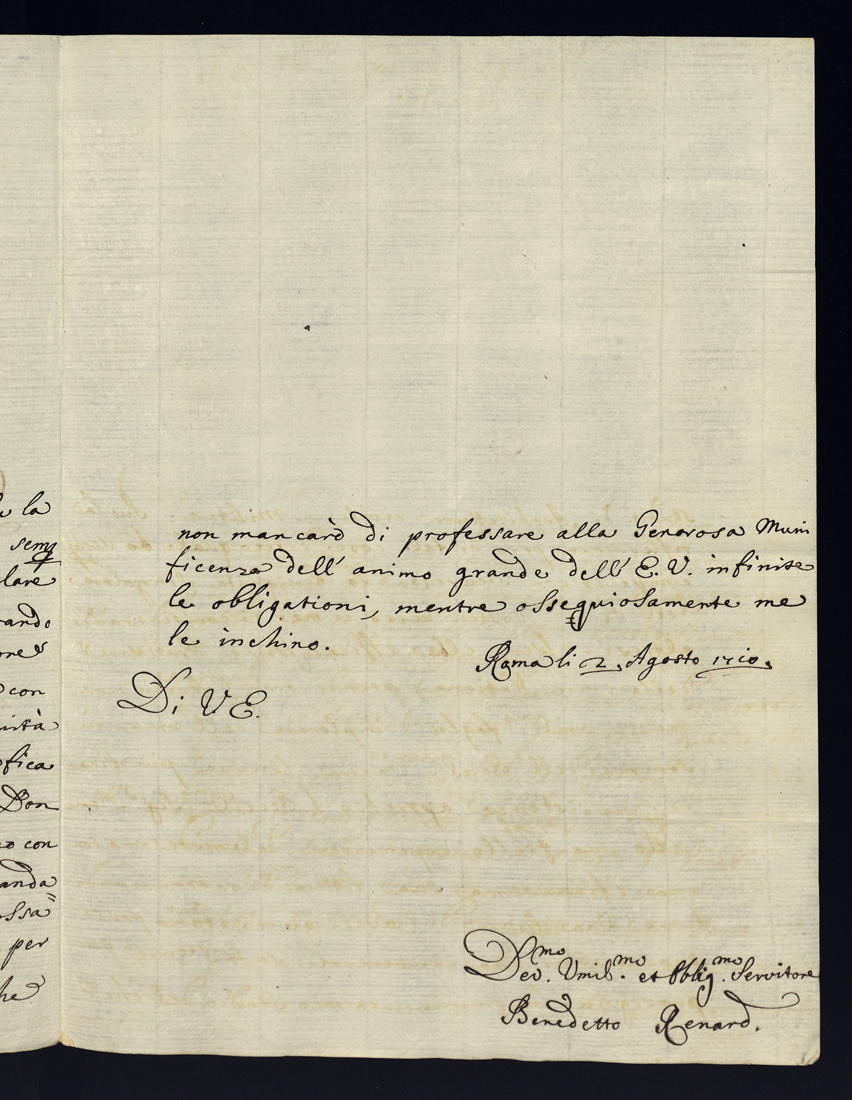 la
semp
lare
rando
con
ista
fica
Don
con
anda
ossa
per
he
non mancarò di professare alla Generosa Muni
ficenza dell' animo grande dell' E. V. infinite
le obligationi, mentre ossequiosamente me
le inchino.
Roma li 2. Agosto 1710.
Di V E.
Dev.mo Umil.mo et Obblig.mo Servitore
Benedetto Renard.